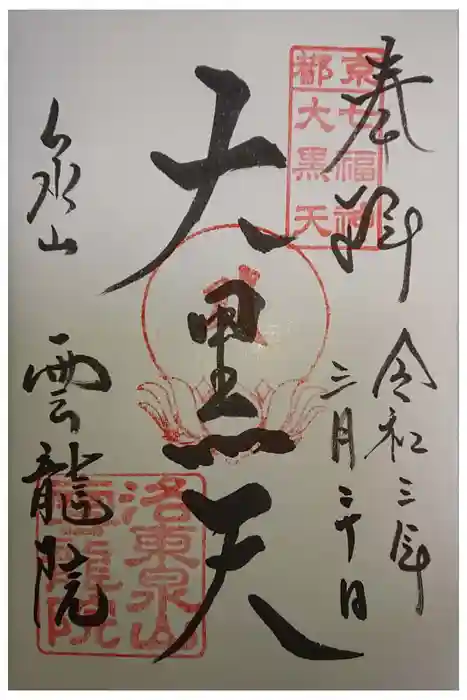 奉拝
令和三年
三月三十日
京七福神
都大黒天
大黒天
泉山
雲龍院
洛東泉山
雲龍院